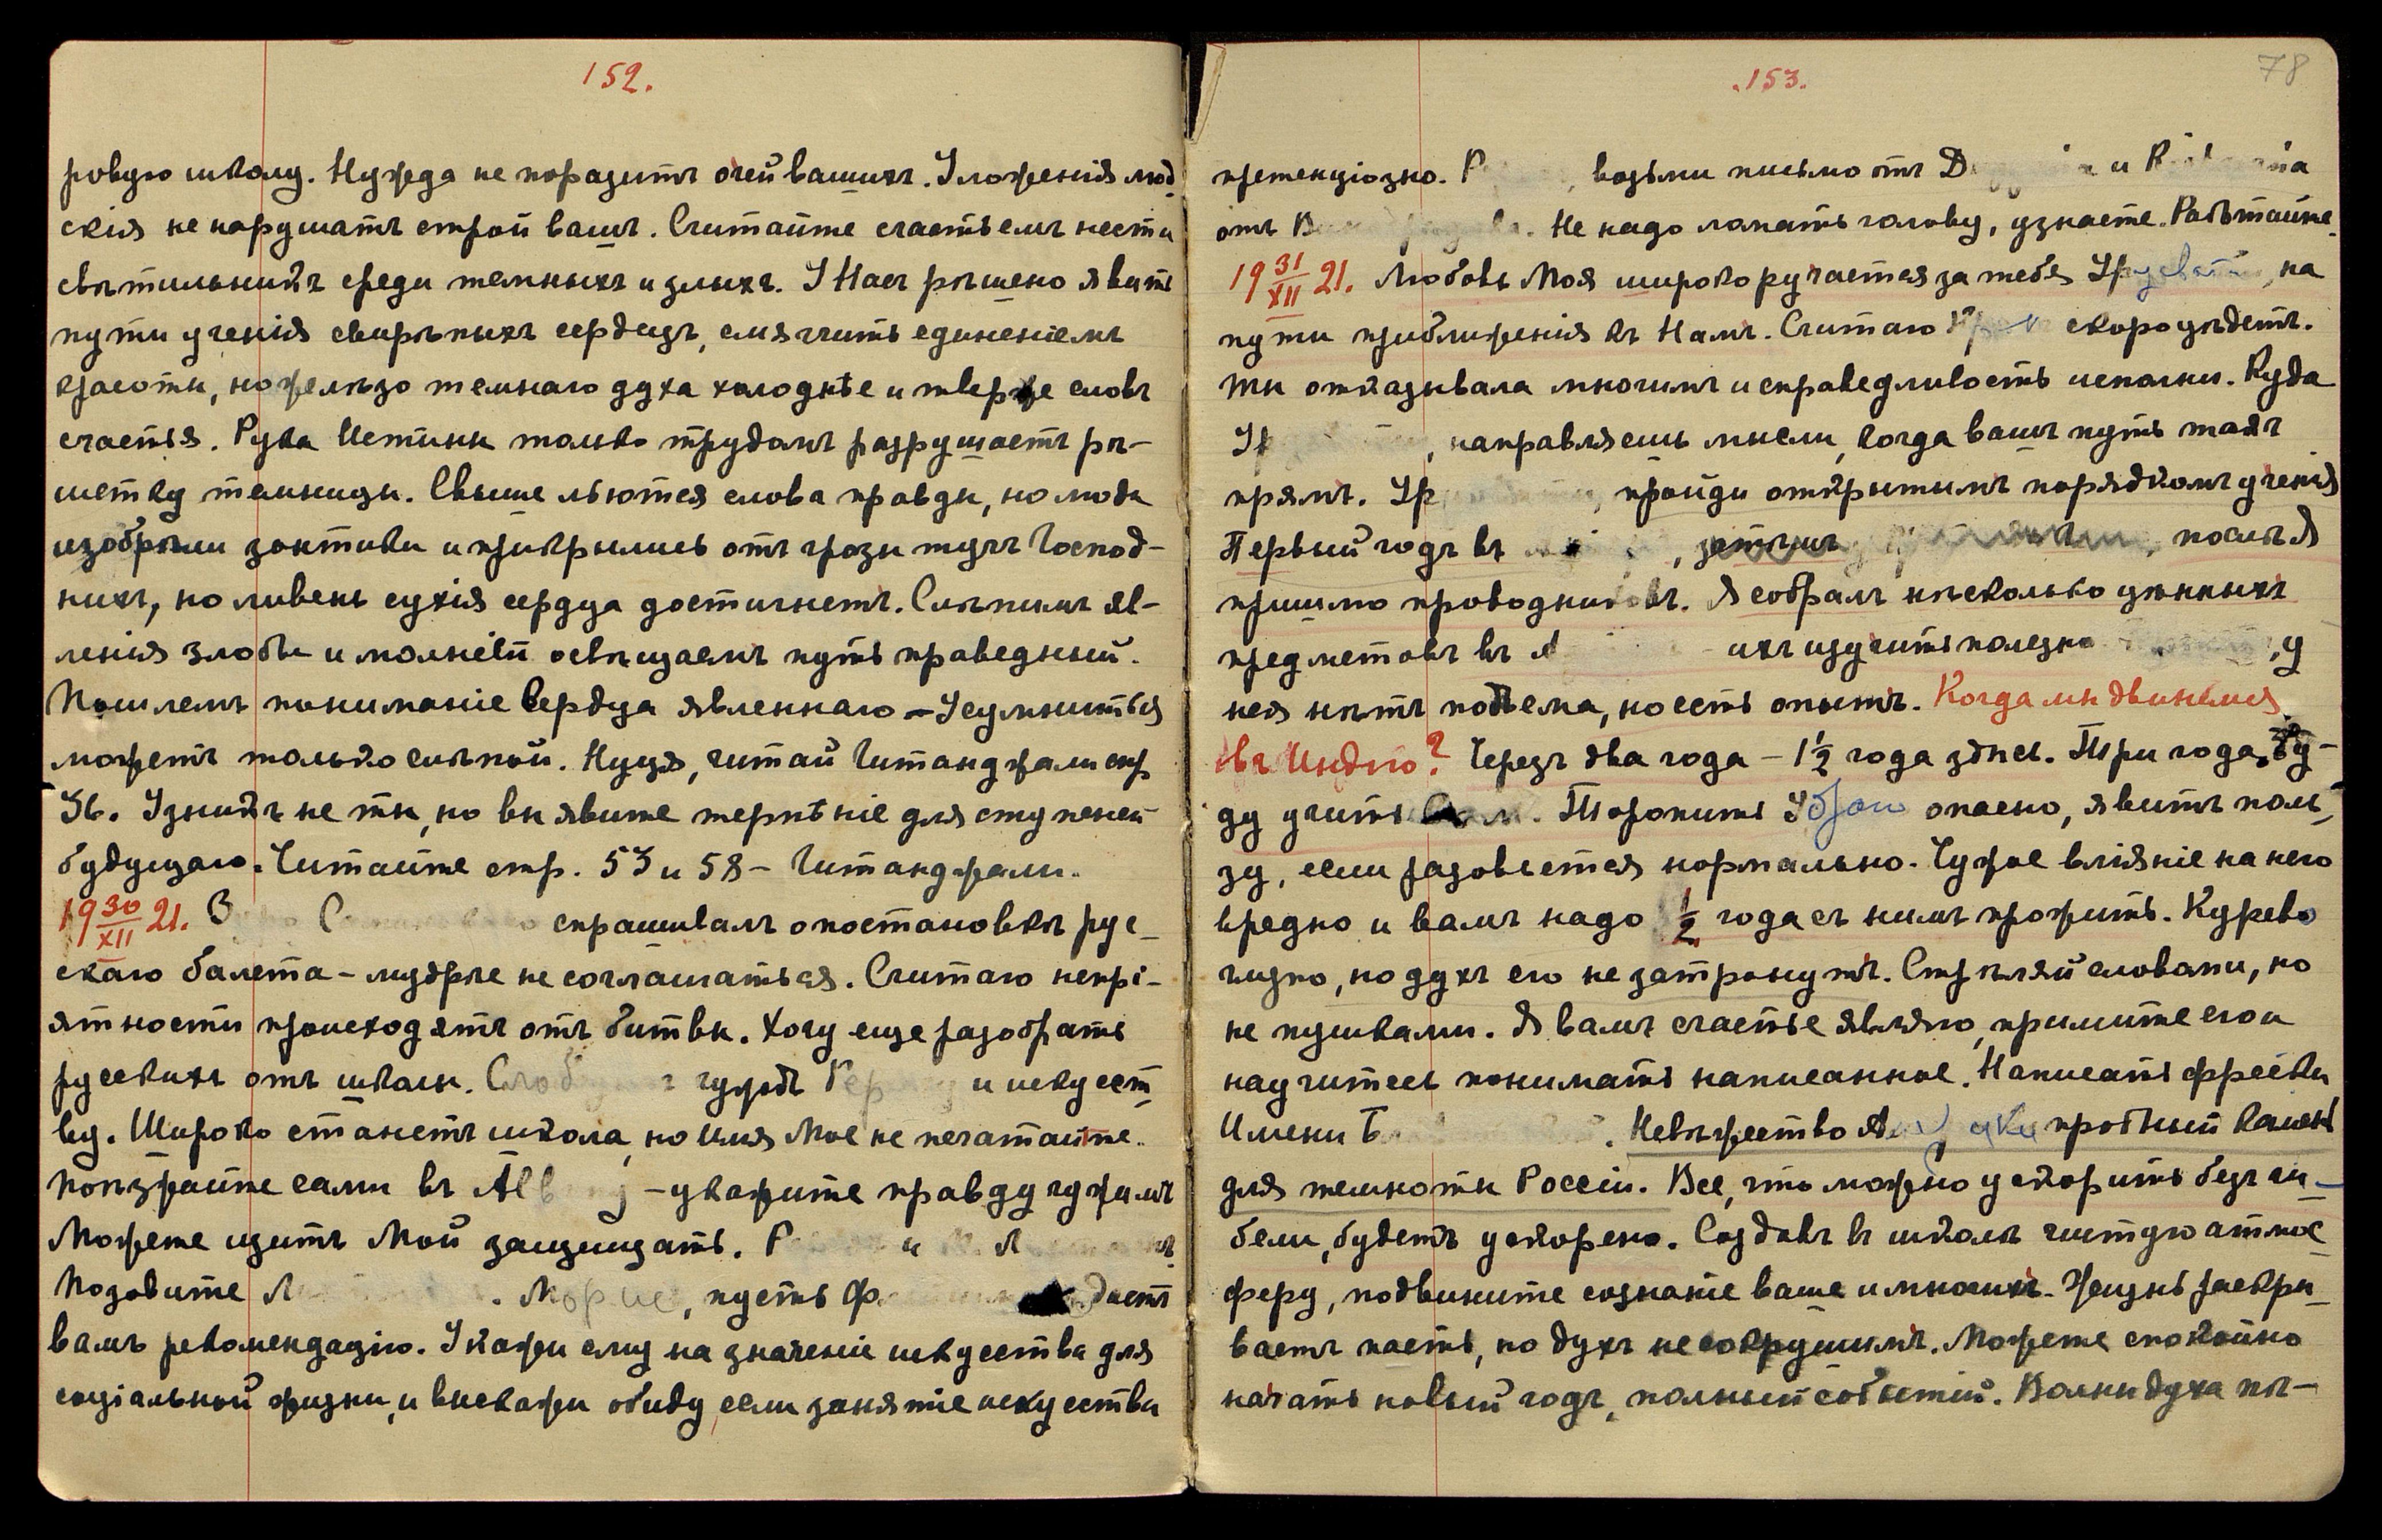 152.
ровую школу. Нужда не поразитъ очей вашихъ. Уложенія люд-
скія не нарушатъ строй вашъ. Считайте счастьемъ нести
свѣтильникъ среди темныхъ и злыхъ. У Насъ рѣшено явить
пути ученія свирѣпыхъ сердецъ, смягчить единеніемъ
красоты, но желѣзо темнаго духа холоднѣе и тверже словъ
счастья. Рука Истины только трудомъ разрушаетъ рѣ-
шетку темницы. Свыше льются слова правды, но люди
изобрѣли зонтики и прикрылись отъ грозы тучъ Господ-
нихъ, но ливень сухія сердца достигнетъ. Слѣпимъ яв-
ленія злобы и молніей освѣщаемъ путь праведный.
Пошлемъ пониманіе Сердца явленнаго – Усумниться
можетъ только слѣпой. Нуця, читай Гитанджали стр
36. Узникъ не ты, но вы явите терпѣніе для ступеней
будущаго. Читайте стр. 53 и 58 – Гитанджали.
19 30/XII 21. спрашивалъ о постановкѣ рус-
скаго балета – мудрѣе не соглашаться. Считаю непрі-
ятности происходятъ отъ битвы. Хочу еще разобрать
русскихъ отъ школы. чуждъ и искусст
ву. Широко станетъ школа, но Имя Мое не печатайте.
Поѣзжайте сами въ – укажите правду чужимъ
Можете щитъ Мой защищать. и
Позовите . Морис, пусть дастъ
вамъ рекомендацію. Укажи ему на значеніе искусства для
соціальной жизни, и выскажи обиду если занятіе искусства
.153. 78
претенціозно. возьми письмо отъ и
отъ . Не надо ломать голову, узнаете. Работайте.
19 31/XII 21. Любовь Моя широко ручается за тебя , на
пути приближенія къ Намъ. Считаю скоро уѣдетъ.
ты отказывала многимъ и справедливость исполни. Куда
, направляешь мысли, когда вашъ путь такъ
прямъ. , пройди открытымъ порядкомъ ученія
Первый годъ въ , затѣмъ , послѣ Я
пришлю проводниковъ. Я собралъ нѣсколько цѣнныхъ
предметовъ въ ихъ изучить полезно , у
нея нѣтъ подъема, но есть опытъ. Когда мы двинемся
въ Индію? Черезъ два года – 1½ года здѣсь. Три года бу-
ду учить . Торопить опасно, явитъ поль-
зу, если разовьется нормально. Чужое вліяніе на него
вредно и вамъ надо ½ года съ нимъ прожить. Курево
гнузно, но духъ его не затронутъ. Стрѣляй словами, но
не пушками. Я вамъ счастье являю, примите его и
научитесь понимать написанное. Написать фрески
Имени . Невѣжество пробный камень
для темноты Россіи. Все, что можно ускорить безъ ги-
бели, будетъ ускорено. Создавъ въ школѣ чистую атмос-
феру, подвините сознаніе ваше и многихъ. Жизнь раскры-
ваетъ пасть, но духъ несокрушимъ. Можете спокойно
начать новый годъ, полный событій. Волны духа пѣ-